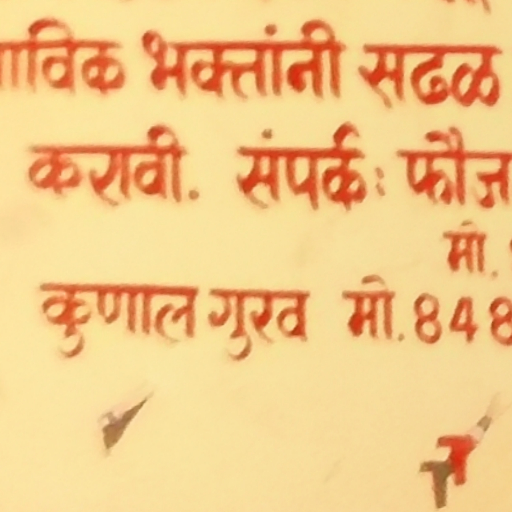 भाविक भक्तांनी सढळ
करावी. संपर्क: फौज
मो.
कुणाल गुरव मो. 848